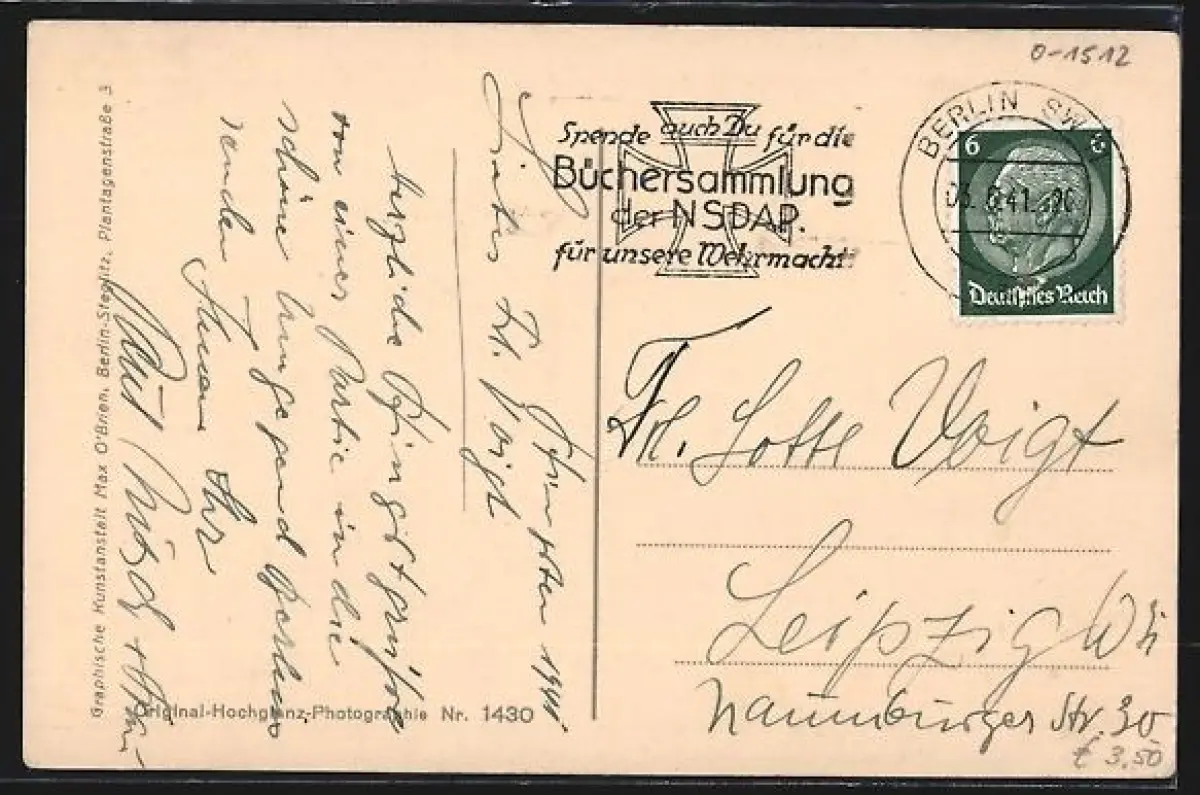 0-1512
BERLIN SW
6
Deutsches Reich
Spende auch Du für die
Büchersammlung
der NSDAP.
für unsere Wehrmacht!
Pfingsten 1941
Liebes Frl. Voigt
herzliche Pfingstgrüße
von einer Partie in die
schöne Umgegend Berlins
senden Ihnen Ihr
Frl. Lotte Voigt
Leipzig W 31
Naumburger Str. 30
€ 3,50
Graphische Kunstanstalt Max O'Brien, Berlin-Steglitz, Plantagenstraße 3
Original-Hochglanz-Photographie Nr. 1430